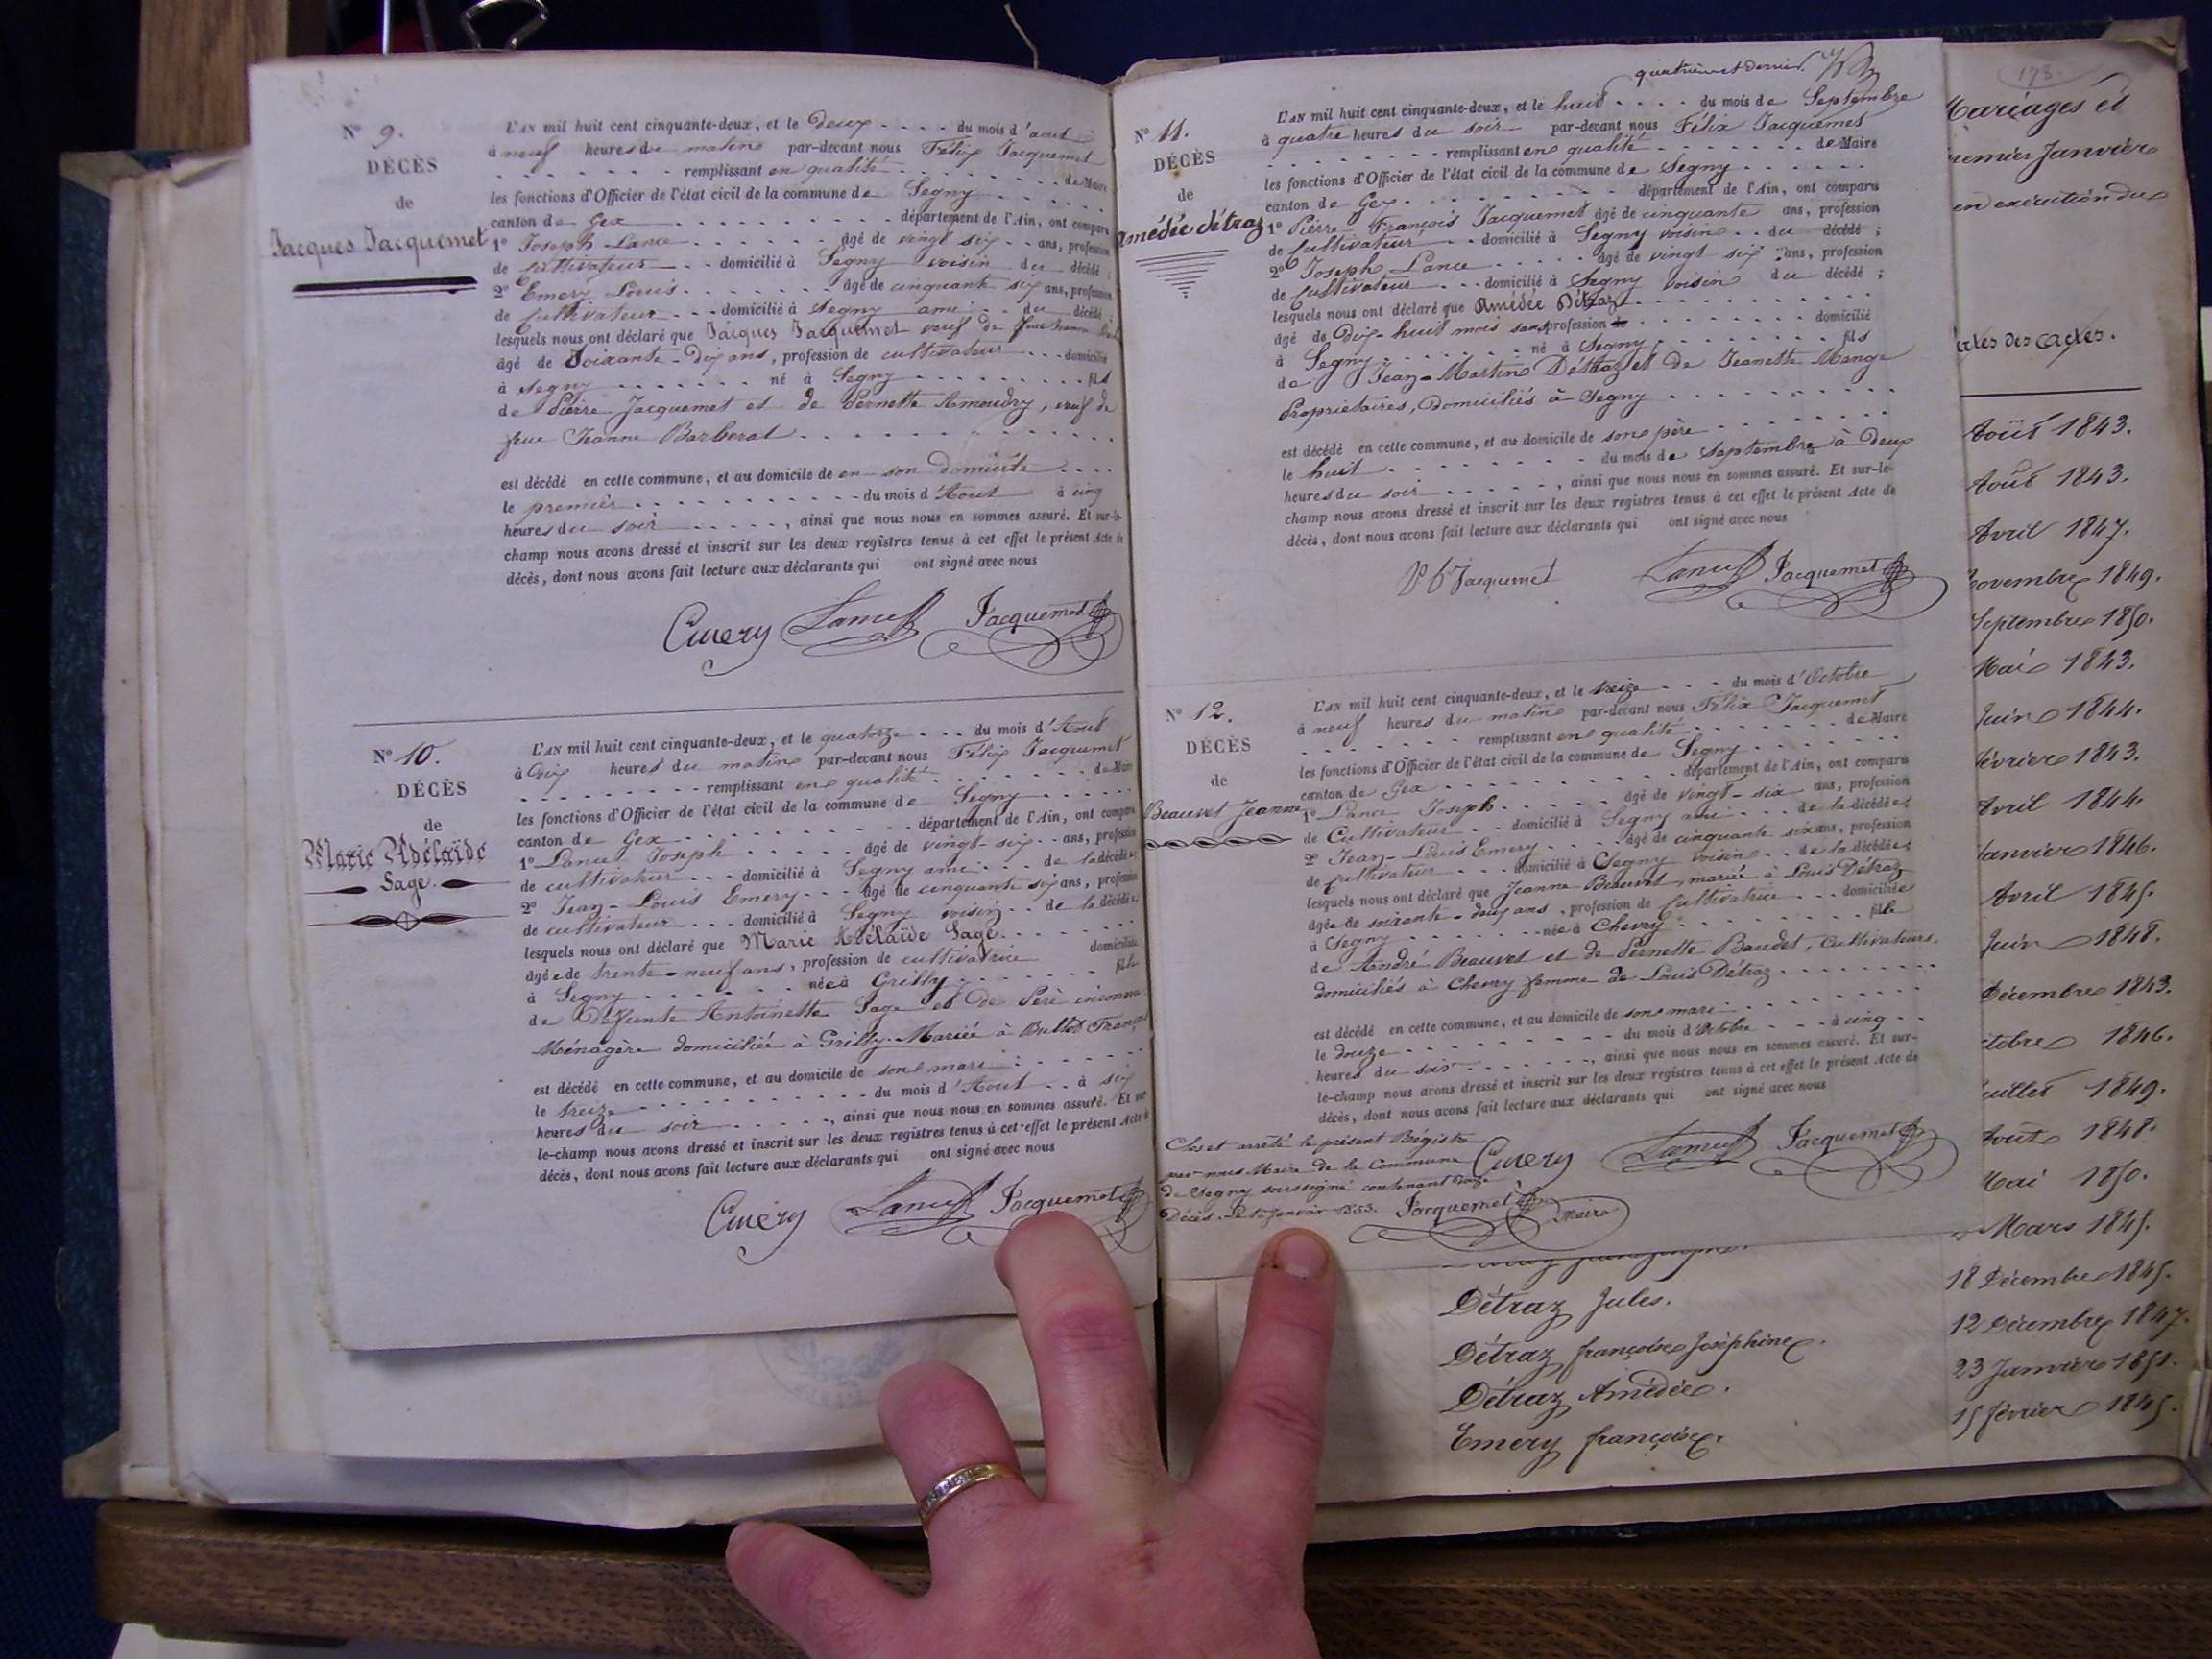 N° 9.
DÉCÈS
de
Jacques Jacquemet
L'AN mil huit cent cinquante-deux, et le Deux . . . . du mois d'aout
à neuf heures du matin par-devant nous Félix Jacquemet
. . . . . . . remplissant en qualité . . . . . . . de Maire
les fonctions d'Officier de l'état civil de la commune de Segny . . . . .
canton de Gex . . . . . . . . . . département de l'Ain, ont comparu
1° Joseph Lance . . . . . . âgé de vingt six . . ans, profession
de Cultivateur . . domicilié à Segny voisin du décédé ;
2° Emery Louis . . . . . . . âgé de cinquante six ans, profession
de Cultivateur . . . domicilié à Segny ami . . du décédé ;
lesquels nous ont déclaré que Jacques Jacquemet veuf de feue Jeanne
âgé de Soixante-Dix ans, profession de cultivateur . . . domicilié
à Segny . . . . . . . né à Segny . . . . . . . . . fils
de Pierre Jacquemet et de Pernette Amoudry, veuf de
feue Jeanne Barberat . . . . . . . . . . . . .
est décédé en cette commune, et au domicile de en son domicile . . . .
le premier . . . . . . . . . . du mois d'Aout à cinq
heures du soir . . . . . , ainsi que nous nous en sommes assuré. Et sur-le-
champ nous avons dressé et inscrit sur les deux registres tenus à cet effet le présent Acte de
décès, dont nous avons fait lecture aux déclarants qui ont signé avec nous
Emery Lance J Jacquemet
N° 10.
DÉCÈS
de
Marie Adélaïde
Sage.
L'AN mil huit cent cinquante-deux, et le quatorze . . . . du mois d'Aout
à Dix heures du matin par-devant nous Félix Jacquemet
. . . . . . . . remplissant en qualité . . . . . . . de Maire
les fonctions d'Officier de l'état civil de la commune de Segny . . . . . .
canton de Gex . . . . . . . . . . département de l'Ain, ont comparu
1° Lance Joseph . . . . . âgé de vingt-six . . ans, profession
de cultivateur . . . domicilié à Segny ami . . . de la décédée ;
2° Jean-Louis Emery . . . âgé de cinquante six ans, profession
de cultivateur . . . domicilié à Segny voisin . . de la décédée ;
lesquels nous ont déclaré que Marie Adélaïde Sage . . . . . . .
âgée de trente-neuf ans, profession de cultivatrice domiciliée
à Segny . . . . . . née à Grilly . . . . . . . . fille
de Défunte Antoinette Sage et de Père inconnu
Ménagère domiciliée à Grilly. Mariée à Bullet François
est décédé en cette commune, et au domicile de son mari . . . . . . .
le treize . . . . . . . . . . . du mois d'Aout . . à six
heures du soir . . . . . , ainsi que nous nous en sommes assuré. Et sur-
le-champ nous avons dressé et inscrit sur les deux registres tenus à cet effet le présent Acte de
décès, dont nous avons fait lecture aux déclarants qui ont signé avec nous
Emery Lance J Jacquemet
quatrième et dernier.
N° 11.
DÉCÈS
de
Amédée détraz
L'AN mil huit cent cinquante-deux, et le huit . . . . du mois de Septembre
à quatre heures du soir par-devant nous Félix Jacquemet
. . . . . . . . . remplissant en qualité . . . . . . . de Maire
les fonctions d'Officier de l'état civil de la commune de Segny . . . . . .
canton de Gex . . . . . . . . . département de l'Ain, ont comparu
1° Pierre-François Jacquemet âgé de cinquante ans, profession
de Cultivateur . . domicilié à Segny voisin . . du décédé ;
2° Joseph Lance . . . . . âgé de vingt six ans, profession
de Cultivateur . . . domicilié à Segny voisin du décédé ;
lesquels nous ont déclaré que Amédée Détraz . . . . . . . . . .
âgé de Dix-huit mois sans profession de . . . . . . . . domicilié
à Segny . . . . . . . né à Segny . . . . . . . . . fils
de Jean-Martin Détraz et de Jeanette Mange
Propriétaires, Domiciliés à Segny . . . . . . . . . .
est décédé en cette commune, et au domicile de son père . . . . . .
le huit . . . . . . . . . du mois de Septembre à deux
heures du soir . . . . . , ainsi que nous nous en sommes assuré. Et sur-le-
champ nous avons dressé et inscrit sur les deux registres tenus à cet effet le présent Acte de
décès, dont nous avons fait lecture aux déclarants qui ont signé avec nous
P f Jacquemet Lance J Jacquemet
N° 12.
DÉCÈS
de
Beauvet Jeanne
L'AN mil huit cent cinquante-deux, et le treize . . . du mois d'Octobre
à neuf heures du matin par-devant nous Félix Jacquemet
. . . . . . . . remplissant en qualité . . . . . . . de Maire
les fonctions d'Officier de l'état civil de la commune de Segny . . . . . . .
canton de Gex . . . . . . . . . . département de l'Ain, ont comparu
1° Lance Joseph . . . . . âgé de vingt-six ans, profession
de Cultivateur . . domicilié à Segny ami . . . de la décédée ;
2° Jean-Louis Emery . . . . âgé de cinquante six ans, profession
de Cultivateur . . . domicilié à Segny voisin . . de la décédée ;
lesquels nous ont déclaré que Jeanne Beauvet, mariée à Louis Détraz
âgée de soixante-deux ans, profession de Cultivatrice . . . domiciliée
à Segny . . . . . . . . née à Chevry . . . . . . . . . fille
de André Beauvet et de Pernette Baudet, Cultivateurs.
domiciliés à Chevry femme de Louis Détraz . . . . . . . .
est décédé en cette commune, et au domicile de son mari . . . . . . . .
le douze . . . . . . . . . . du mois d'Octobre . . . à cinq . .
heures du soir . . . . . . , ainsi que nous nous en sommes assuré. Et sur-
le-champ nous avons dressé et inscrit sur les deux registres tenus à cet effet le présent Acte de
décès, dont nous avons fait lecture aux déclarants qui ont signé avec nous
Emery Lance J Jacquemet
Clos et arrêté le présent Régistre
par nous Maire de la Commune
de Segny soussigné contenant douze
Décès. Le 1er Janvier 1853. Jacquemet Maire
178.
Mariages et
premier Janvier
en exécution du
Dates des actes.
Août 1843.
Août 1843.
Avril 1847.
Novembre 1849.
Septembre 1850.
Mai 1843.
Juin 1844.
février 1843.
Avril 1844.
Janvier 1846.
Avril 1845.
Juin 1848.
Décembre 1843.
Octobre 1846.
Juillet 1849.
Août 1848.
Mai 1850.
Mars 1845.
18 Décembre 1845.
Détraz Jules. 12 Décembre 1847.
Détraz françoise Joséphine. 23 Janvier 1851.
Détraz Amédée. 15 février 1845.
Emery françoise.